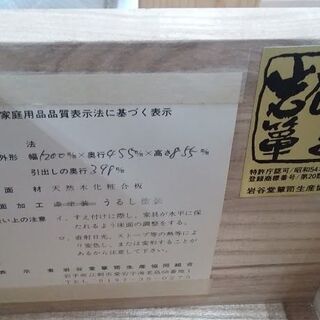 家庭用品品質表示法に基づく表示
寸法
外形 幅1200%×奥行455%×高さ855%
引出しの奥行398%
表面材 天然木化粧合板
表面加工 うるし塗装
取扱い上の注意 イ、すえ付けに際し、家具が水平に保
たれるよう床面の調整をする。
ロ、直射日光、ストーブ等の熱等により
変色し、または変形することが
あるから注意して下さい。
表示者 岩谷堂箪笥生産協同組合
岩谷堂
箪笥
特許庁認可/昭和54.
登録商標番号/第20
岩谷堂箪笥生産協